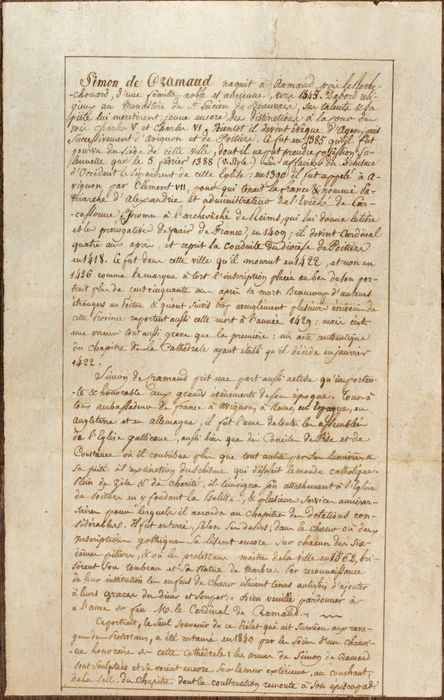 Simon de Cramaud naquit à Cramaud près de Roche-
chouard, d'une famille noble et ancienne, vers 1345. D'abord reli-
gieux au Monastère de St Lucien de Beauvais, ses talents & sa
piété lui méritèrent jeune encore des distinctions à la cour des
rois Charles V et Charles VI. Bientôt il devint évêque d'Agen, puis
successivement d'Avignon et de Poitiers. Ce fut en 1385 qu'il fut
pourvu du siège de cette ville, dont il ne put prendre possession so-
lennelle que le 5 février 1388 (V. Style). Les affaires du schisme
d'Occident l' de cette Eglise: en 1390 il fut appelé à
Avignon par Clément VII, pour qui tenait la France & nommé Pa-
triarche d'Alexandrie et administrateur de l'Evêché de Car-
cassonne. Promu à l'archevêché de Reims, qui lui donna le titre
et les prérogatives de pair de France, en 1409; il devint Cardinal
quatre ans après, et reprit la conduite du diocèse de Poitiers
en 1418. Ce fut dans cette ville qu'il mourut en 1422, et non en
1426 comme le marque à tort l'inscription placée au bas de son por-
trait plus de cent cinquante ans après sa mort. Beaucoup d'auteurs
étrangers au Poitou & quant suivis trop aveuglément plusieurs écrivains de
cette province rapportent aussi cette mort à l'année 1429: mais c'est
une erreur tout aussi grave que la première: un acte authentique
du Chapitre de la Cathédrale ayant établi qu'il décéda en janvier
1422.
Simon de Cramaud prit une part aussi active qu'importan-
te & honorable aux grands évènements de son époque. Tour-à-
tour ambassadeur de France à Avignon, à Rome, en Espagne, en
Angleterre et en Allemagne, il fut l'âme de toutes les assemblées
de l'Eglise gallicane, aussi bien que des Conciles de Pise et de
Constance où il contribua plus que tout autre par ses lumières &
sa piété à l'extinction du schisme qui divisait le monde catholique.
Plein de zèle & de charité, il témoigna son attachement à l'Eglise
de Poitiers en y fondant la Psalette, & plusieurs services anniver-
saires pour lesquels il accorda au chapitre des dotations con-
sidérables. Il fut enterré, selon ses désirs, dans le chœur où des
inscriptions gothiques se lisent encore sur chacun des six-
ième piliers, & où les protestans maîtres de la ville en 1562, bri-
sèrent son tombeau et sa statue de marbre. Par reconnaissance
de leur institution les enfans de chœur étaient tenus autrefois d'ajouter
à leurs graces du diner et souper: « Dieu veuille pardonner à
l'âme de feu M. le Cardinal de Cramaud.
Ce portrait, le seul souvenir de ce prélat qui ait survécu aux rava-
ges des Protestans, a été restauré en 1840 par les soins d'un chanoi-
ne honoraire de cette Cathédrale: les armes de Simon de Cramaud
sont sculptées et se voient encore sur le mur extérieur, au couchant,
de la salle du Chapitre dont la construction remonte à son épiscopat.